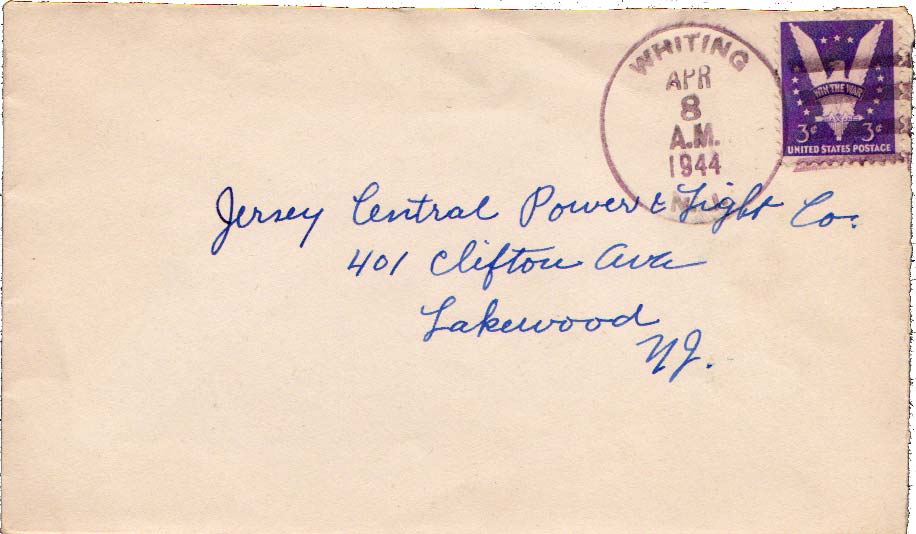 WHITING
APR
8
A.M.
1944
N.J.
WIN THE WAR
3¢ 3¢
UNITED STATES POSTAGE
Jersey Central Power & Light Co.
401 Clifton Ave
Lakewood
NJ.